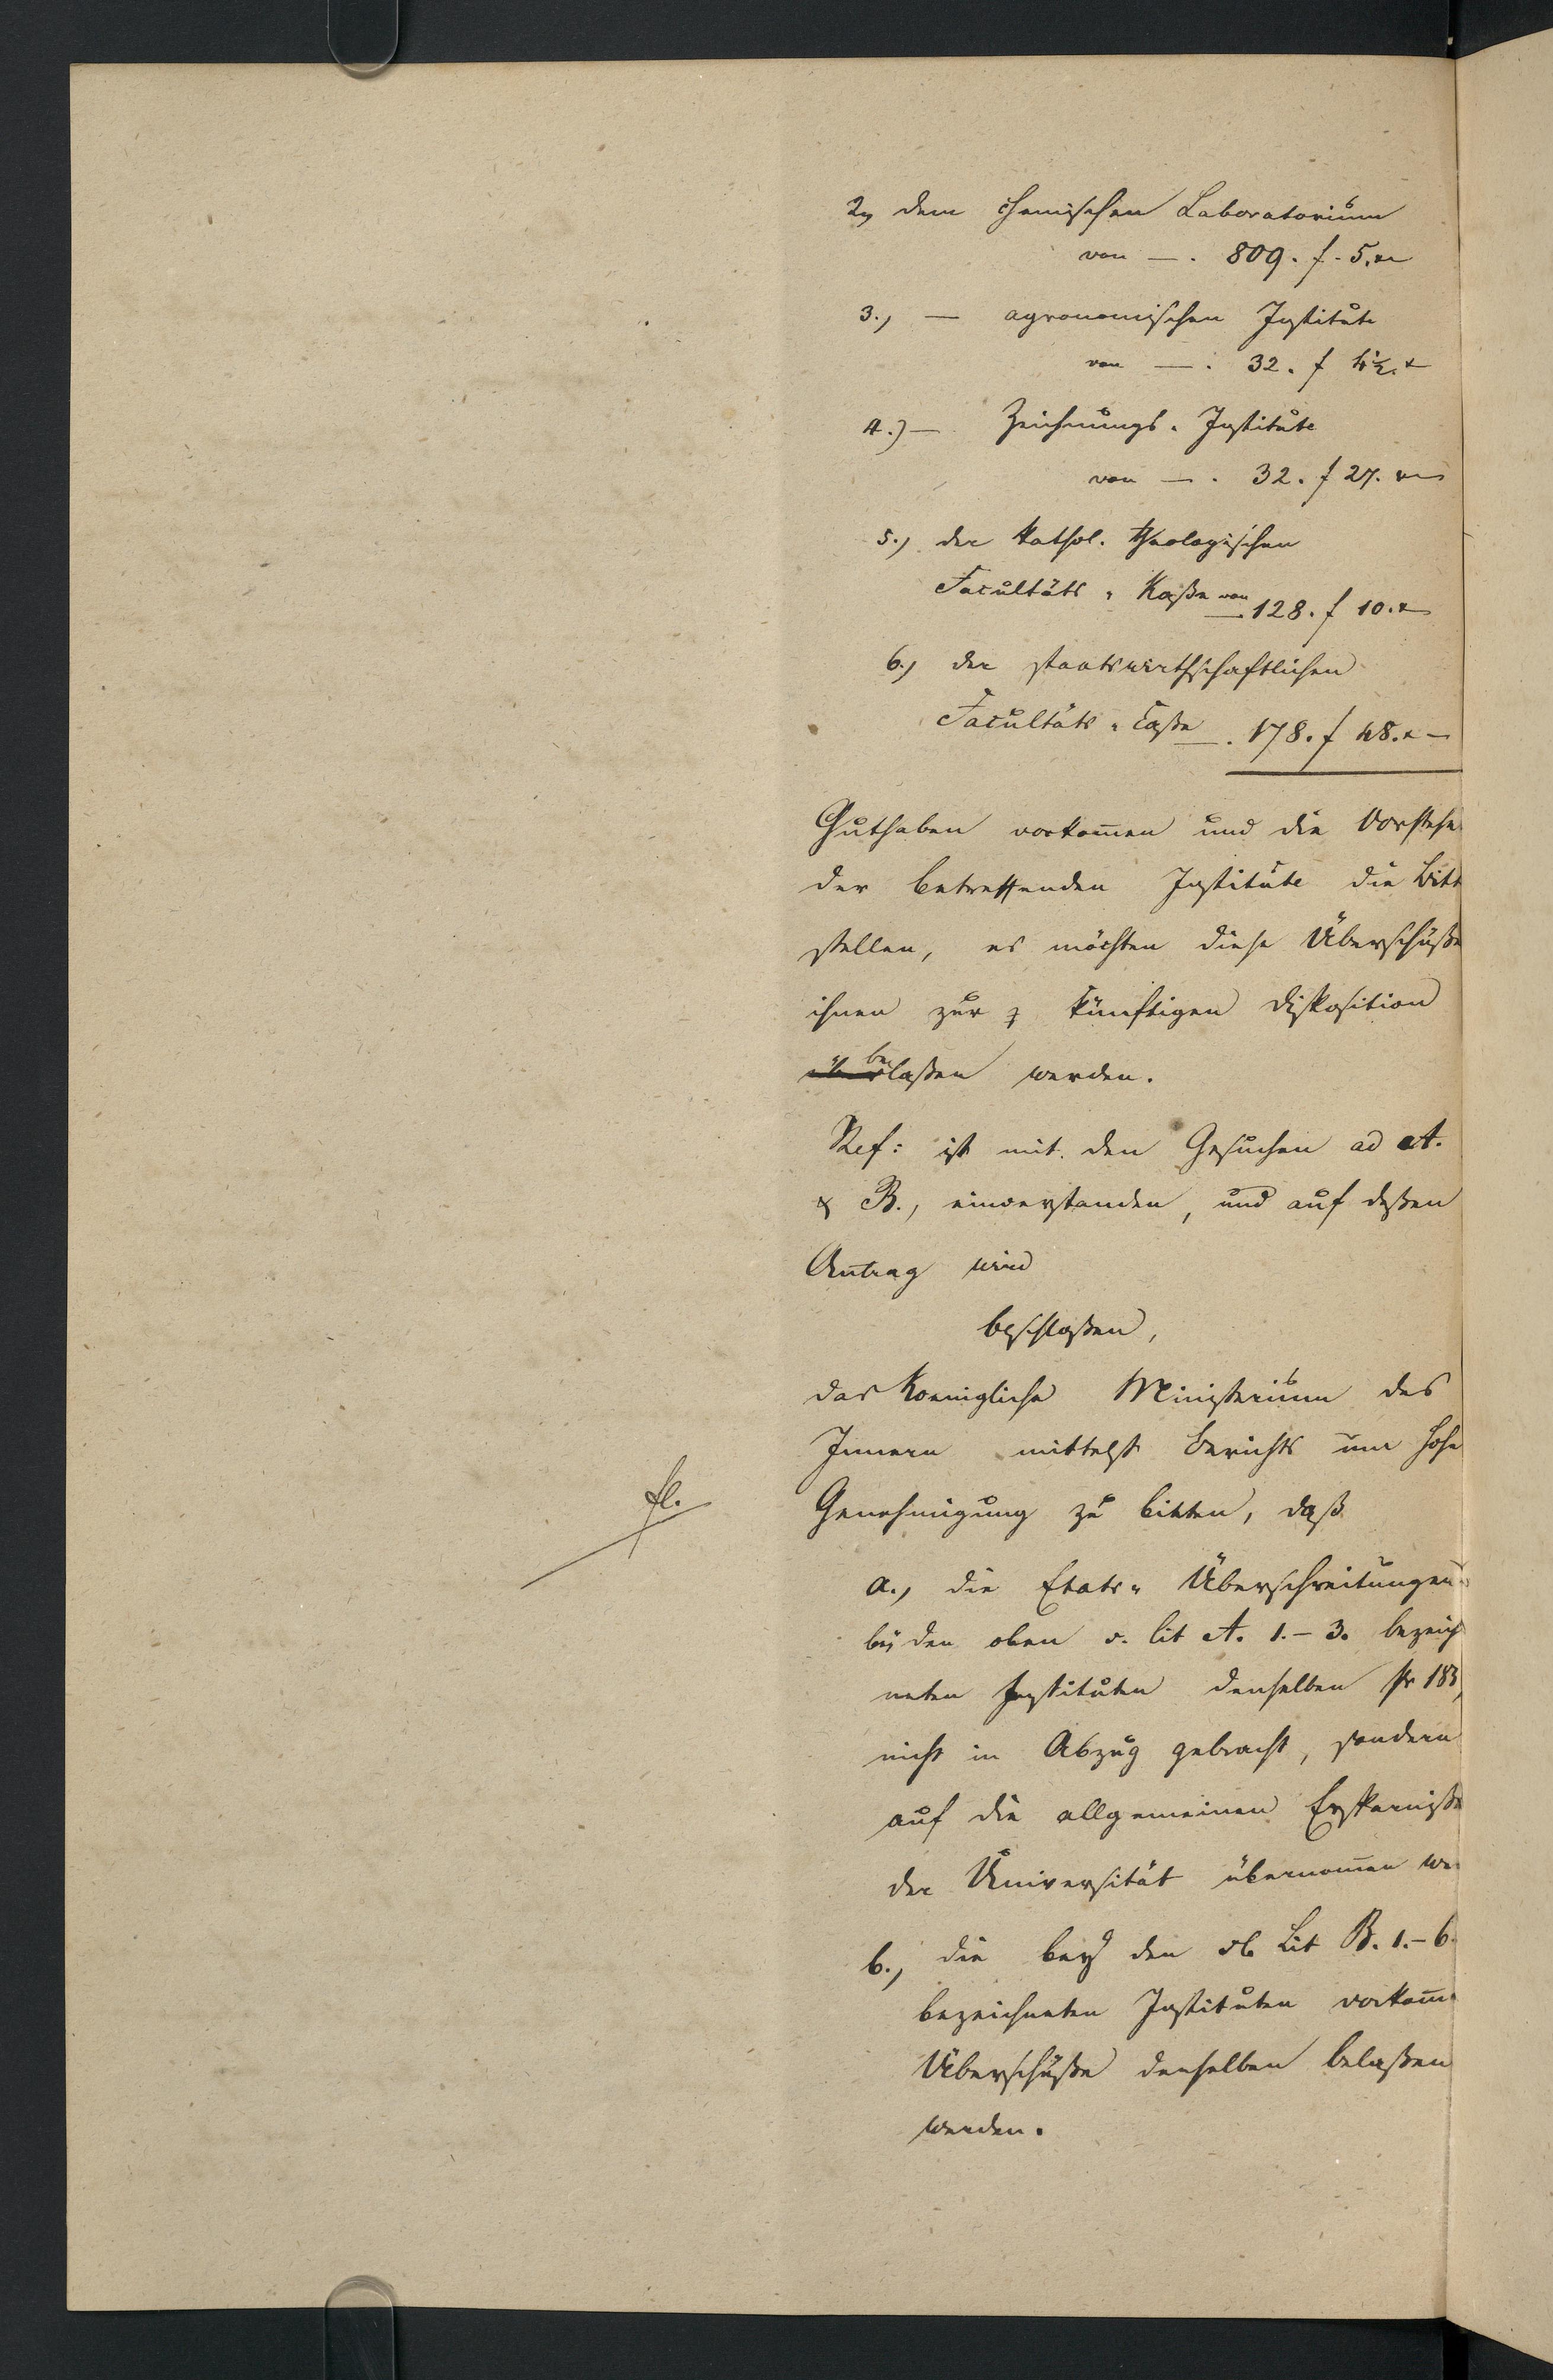 2, dem chemischen Laboratorium
von —. 809. f. 5. x
3., — agronomischen Institute
von —. 32. f 4½. x
4.) — Zeichnungs-Institute
von —. 32. f 27. x
5.) der kathol. theologischen
Facultäts-Kaße von —. 128. f 10. x
6.) der staatswirthschaftlichen
Facultäts-Caße —. 178. f 48. x
Guthaben vorkom̄en und die Vorstehe
der betreffenden Institute die Bitt
stellen, es möchten diese Überschüße
ihnen zur künftigen Disposition
belaßen werden.
Ref: ist mit den Gesuchen ad A.
& B., einverstanden, und auf deßen
Antrag wird
beschloßen,
das Koenigliche Ministerium des
Innern mittelst Berichts um hohe
Genehmigung zu bitten, daß
fl.
a., die Etats-Überschreitungen
bei den oben s. lit A. 1.–3. bezeich
neten Instituten denselben pr 183
nicht in Abzug gebracht, sondern
auf die allgemeinen Ersparniße
der Universität übernom̄en we
b., die bey den sb Lit B. 1.–6.
bezeichneten Instituten vorkom̄
Überschüße denselben belaßen
werden.